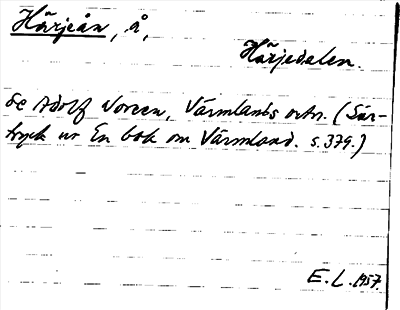 Härjeån, å,
Härjedalen.
Se Adolf Noreen, Värmlands ortn. (Sär-
tryck ur En bok om Värmland. s. 379.)
E. L. 1957.